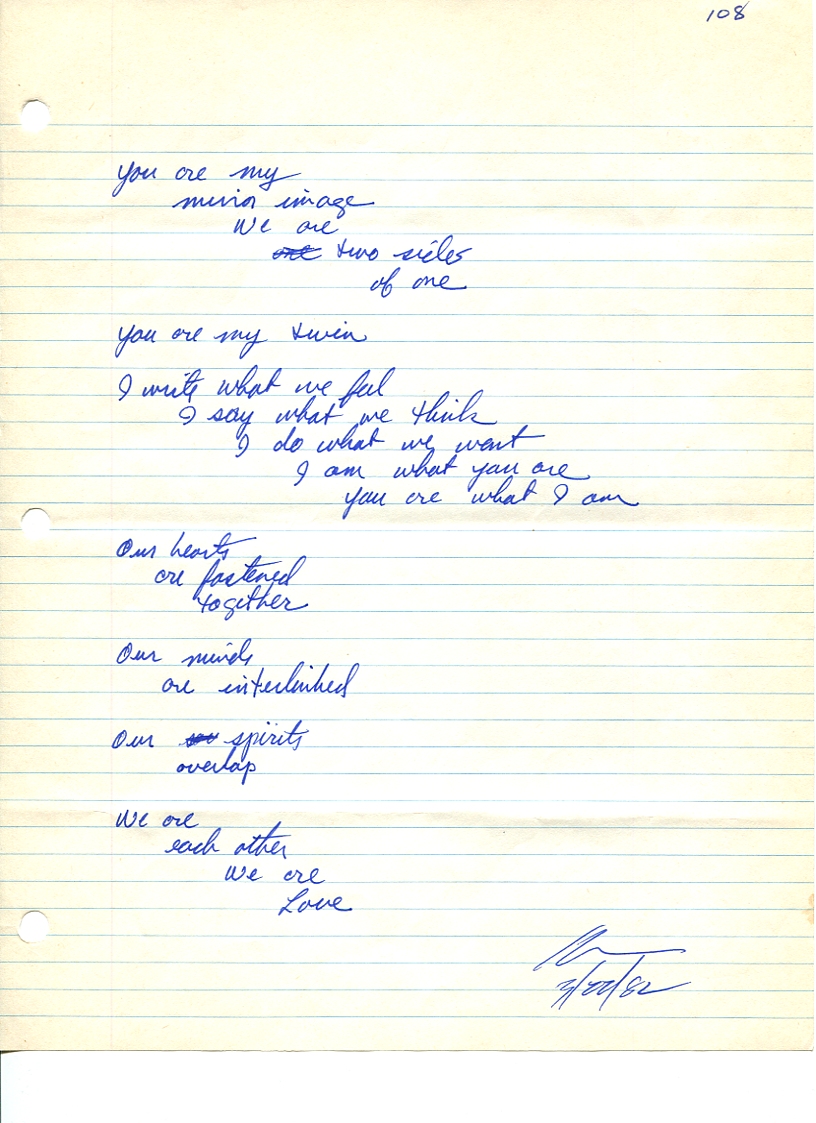 108
You are my
mirror image
We are
two sides
of one
You are my twin
I write what we feel
I say what we think
I do what we want
I am what you are
you are what I am
Our hearts
are fastened
together
Our minds
are interlinked
Our spirits
overlap
We are
each other
We are
Love